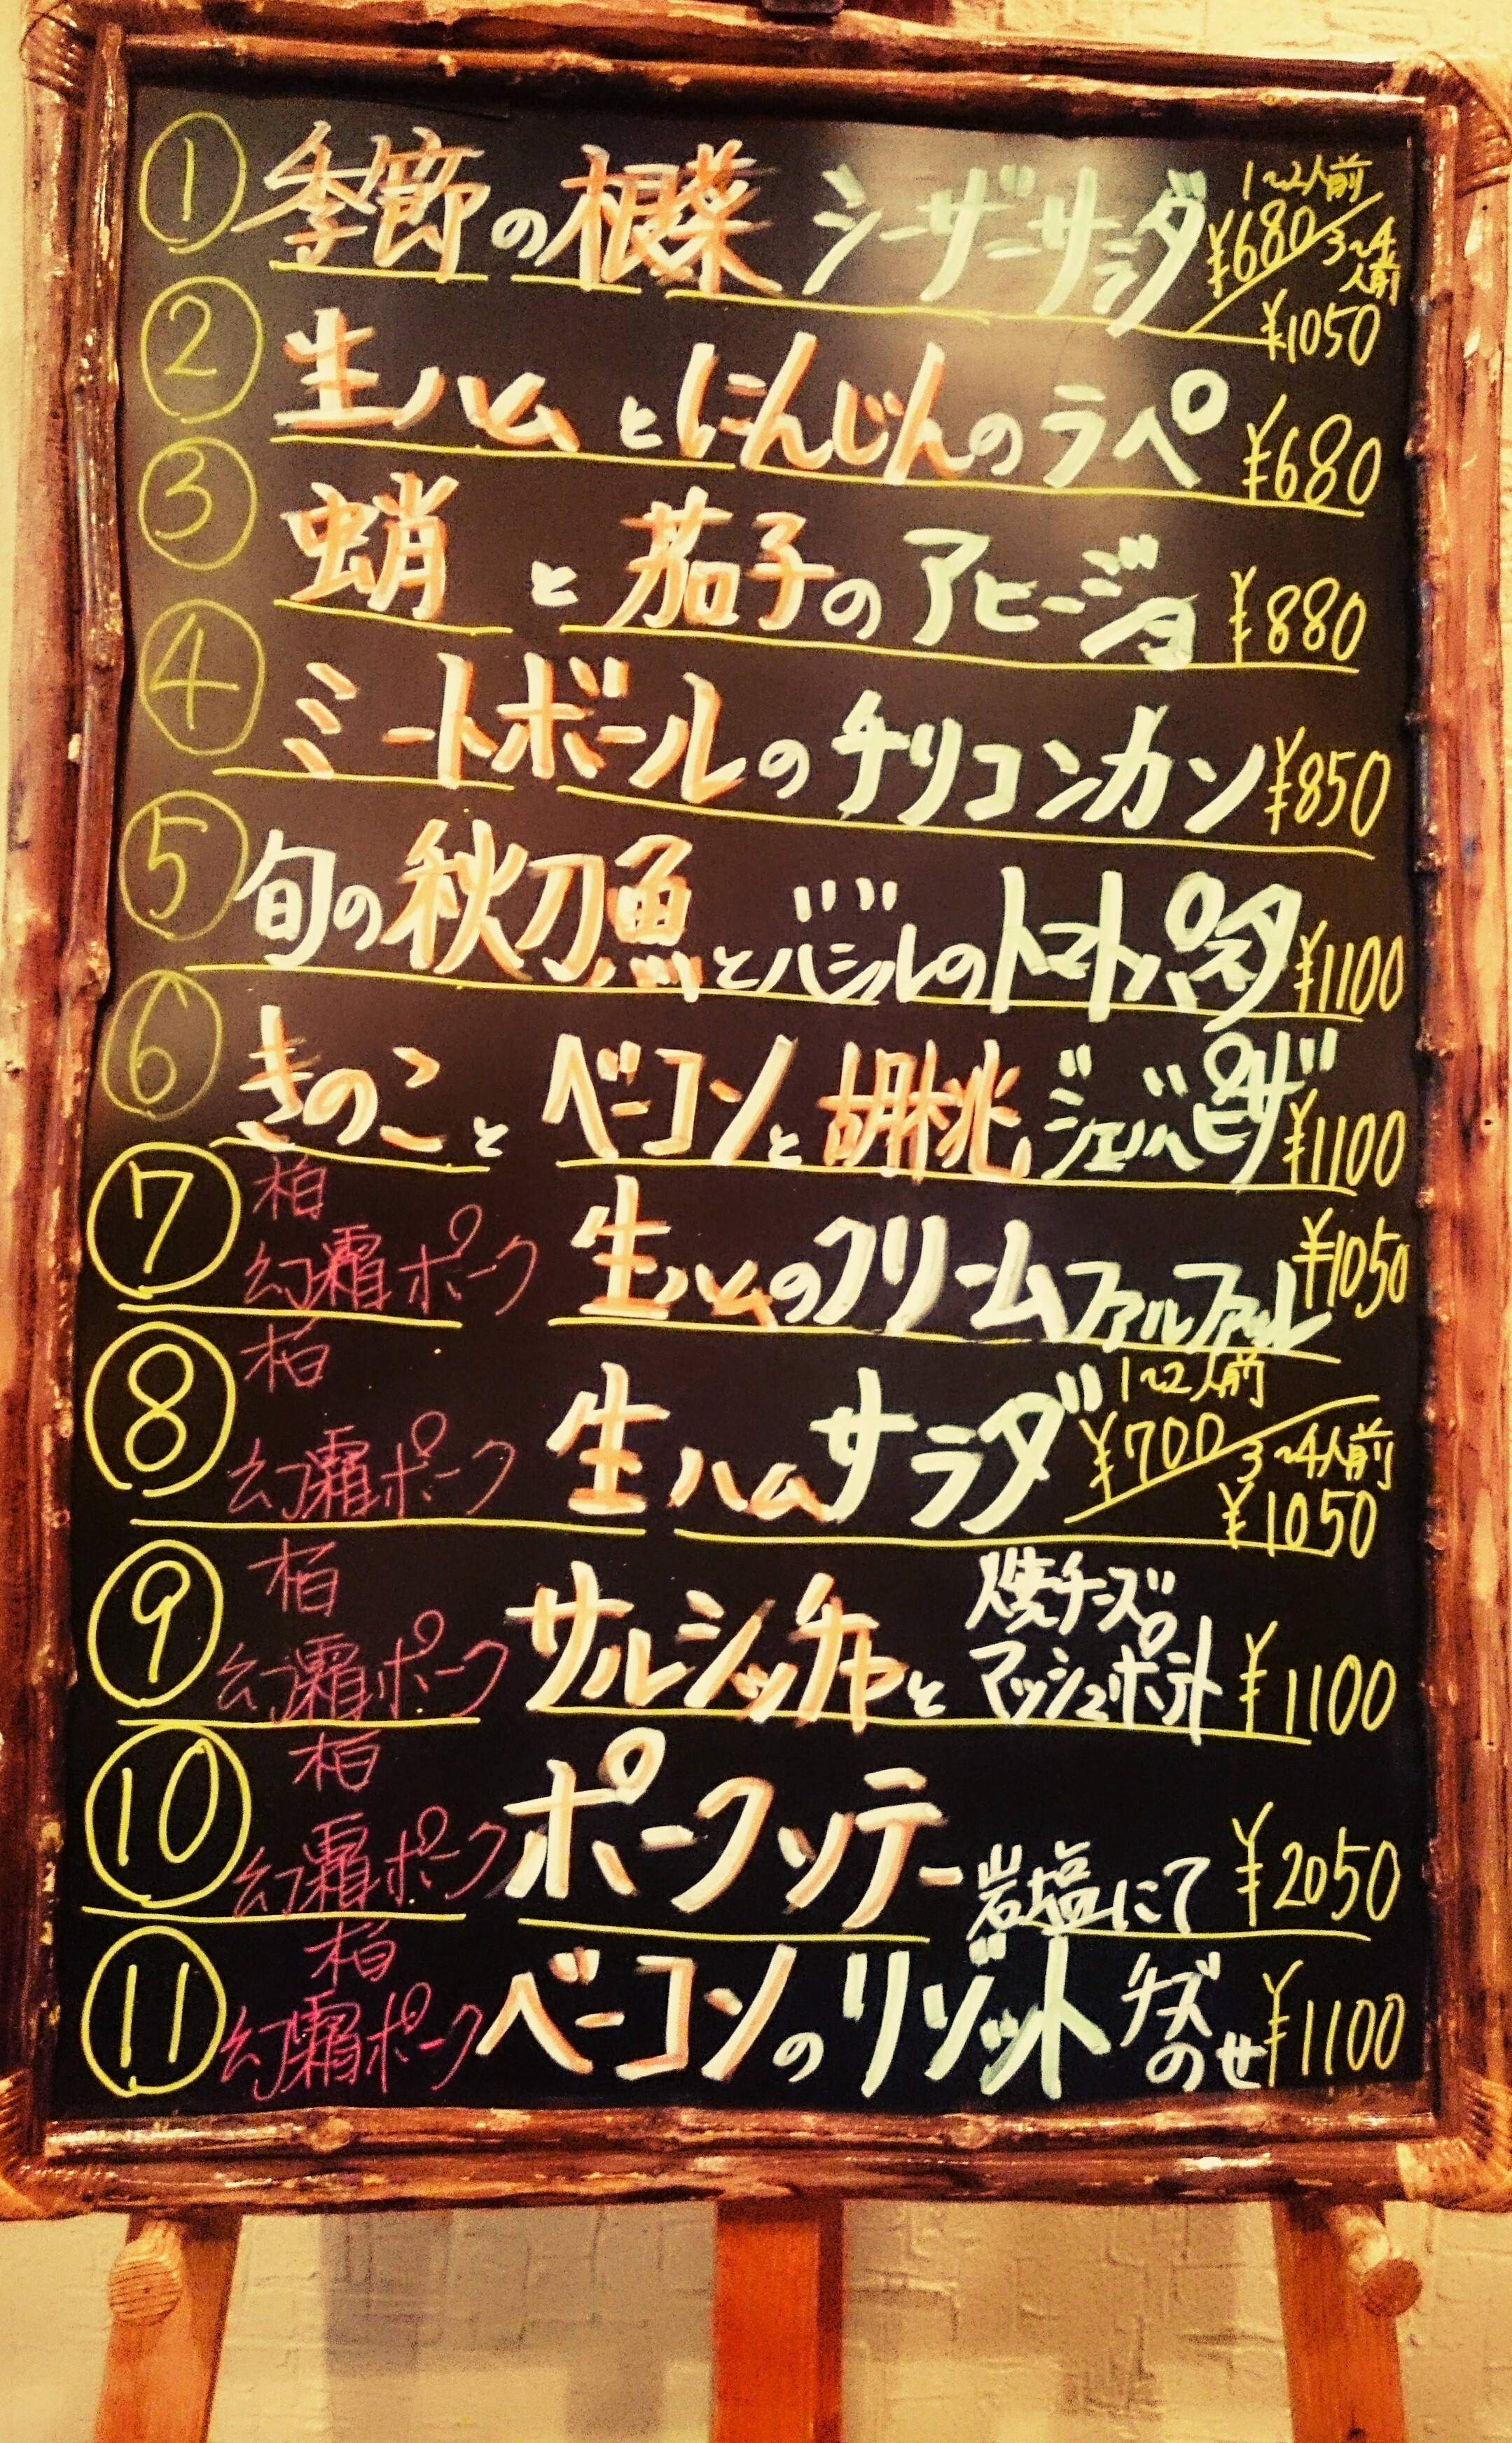 ① 季節の根菜 シーザーサラダ 1~2人前 ¥680 / 3~4人前 ¥1050
② 生ハムとにんじんのラペ ¥680
③ 蛸と茄子のアヒージョ ¥880
④ ミートボールのチリコンカン ¥850
⑤ 旬の秋刀魚とバジルのトマトパスタ ¥1100
⑥ きのことベーコンと胡桃 ジェノバピザ ¥1100
⑦ 柏 幻霜ポーク 生ハムのクリームファルファッレ ¥1050
⑧ 柏 幻霜ポーク 生ハムサラダ 1~2人前 ¥700 / 3~4人前 ¥1050
⑨ 柏 幻霜ポーク サルシッチャと焼チーズマッシュポテト ¥1100
⑩ 柏 幻霜ポーク ポークソテー 岩塩にて ¥2050
⑪ 柏 幻霜ポーク ベーコンのリゾット チーズのせ ¥1100